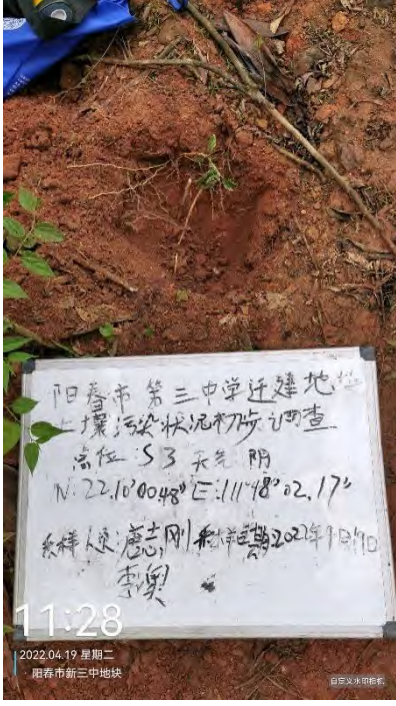 阳春市第三中学迁建地块
土壤污染状况初步调查
点位:S3 天气 阴
N:22.10°00.48" E:111°48°02.17"
采样人员:唐志刚 采样日期:2022年4月19日
李奥
11:28
2022.04.19 星期二
· 阳春市新三中地块
自定义水印相机